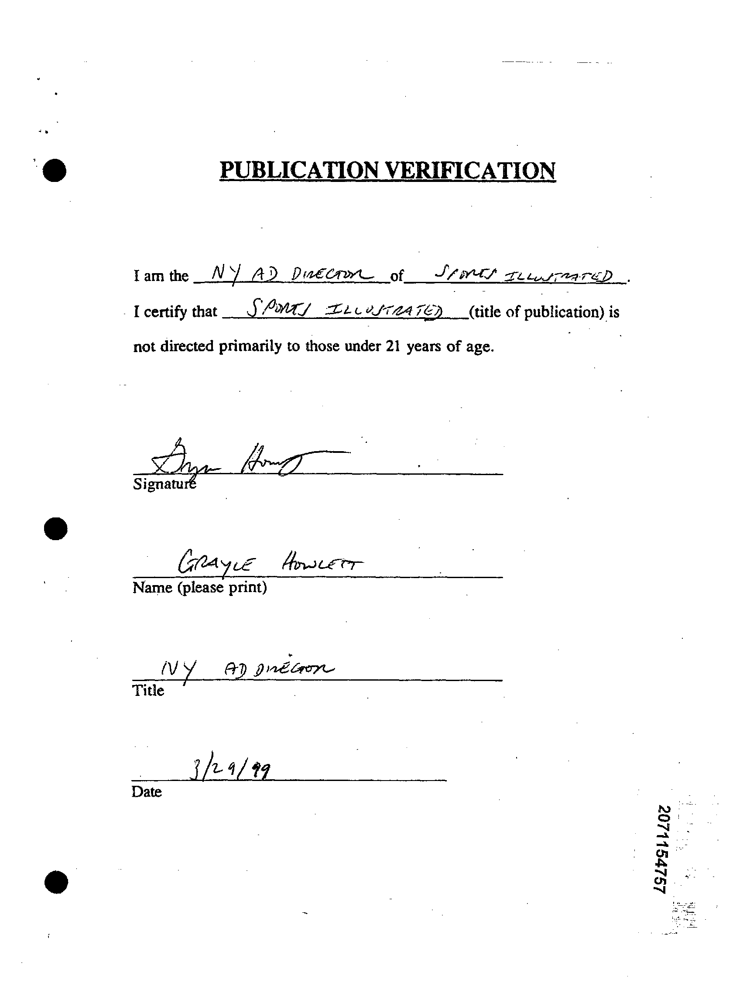 PUBLICATION VERIFICATION
I am the NY AD DIRECTOR of SPORTS ILLUSTRATED.
I certify that SPORTS ILLUSTRATED (title of publication) is
not directed primarily to those under 21 years of age.
Signature
GRAYLE HOWLETT
Name (please print)
NY AD DIRECTOR
Title
3/29/99
Date
2071154757